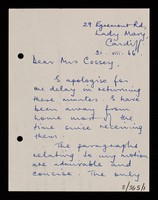 29 Egremont Rd,
Lady Mary,
Cardiff
31. VIII. 66
Dear Mrs Cossey,
I apologise for
the delay in returning
these minutes. I have
been away from
home most of the
time since receiving
them.
The paragraphs
relating to my motion
are admirable and
concise. The only